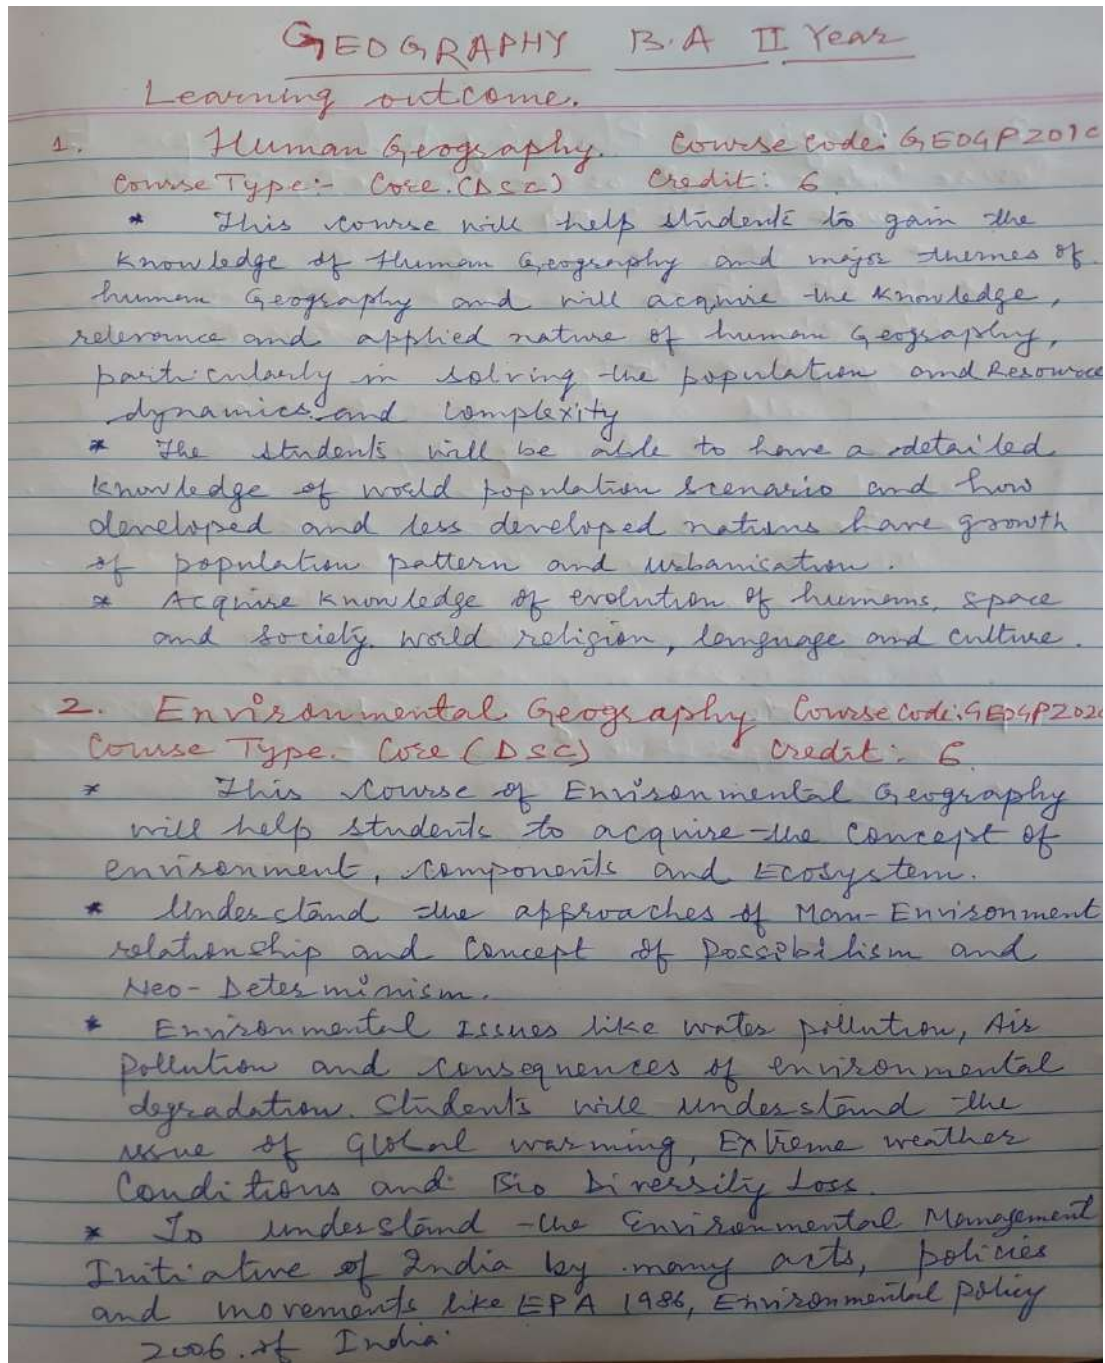 GEOGRAPHY B.A II Year
Learning outcome.
1. Human Geography. Course code: GEOGP201C
Course Type:- Core.(DSC) Credit: 6
* This course will help students to gain the
Knowledge of Human Geography and major themes of
human Geography and will acquire the Knowledge,
relevance and applied nature of human Geography,
particularly in solving the population and Resource
dynamics and complexity
* The students will be able to have a detailed
Knowledge of world population scenario and how
developed and less developed nations have growth
of population pattern and urbanisation.
* Acquire Knowledge of evolution of humans, space
and society. world religion, language and culture.
2. Environmental Geography. Course Code: GEOGP202C
Course Type. Core (DSC) Credit: 6
* This course of Environmental Geography
will help students to acquire the concept of
environment, components and Ecosystem.
* Understand the approaches of Man-Environment
relationship and Concept of Possibilism and
Neo-Determinism.
* Environmental Issues like water pollution, Air
pollution and consequences of environmental
degradation. Students will understand the
issue of Global warming, Extreme weather
Conditions and Bio Diversity Loss.
* To understand the Environmental Management
Initiative of India by many acts, policies
and movements like EPA 1986, Environmental policy
2006. of India.